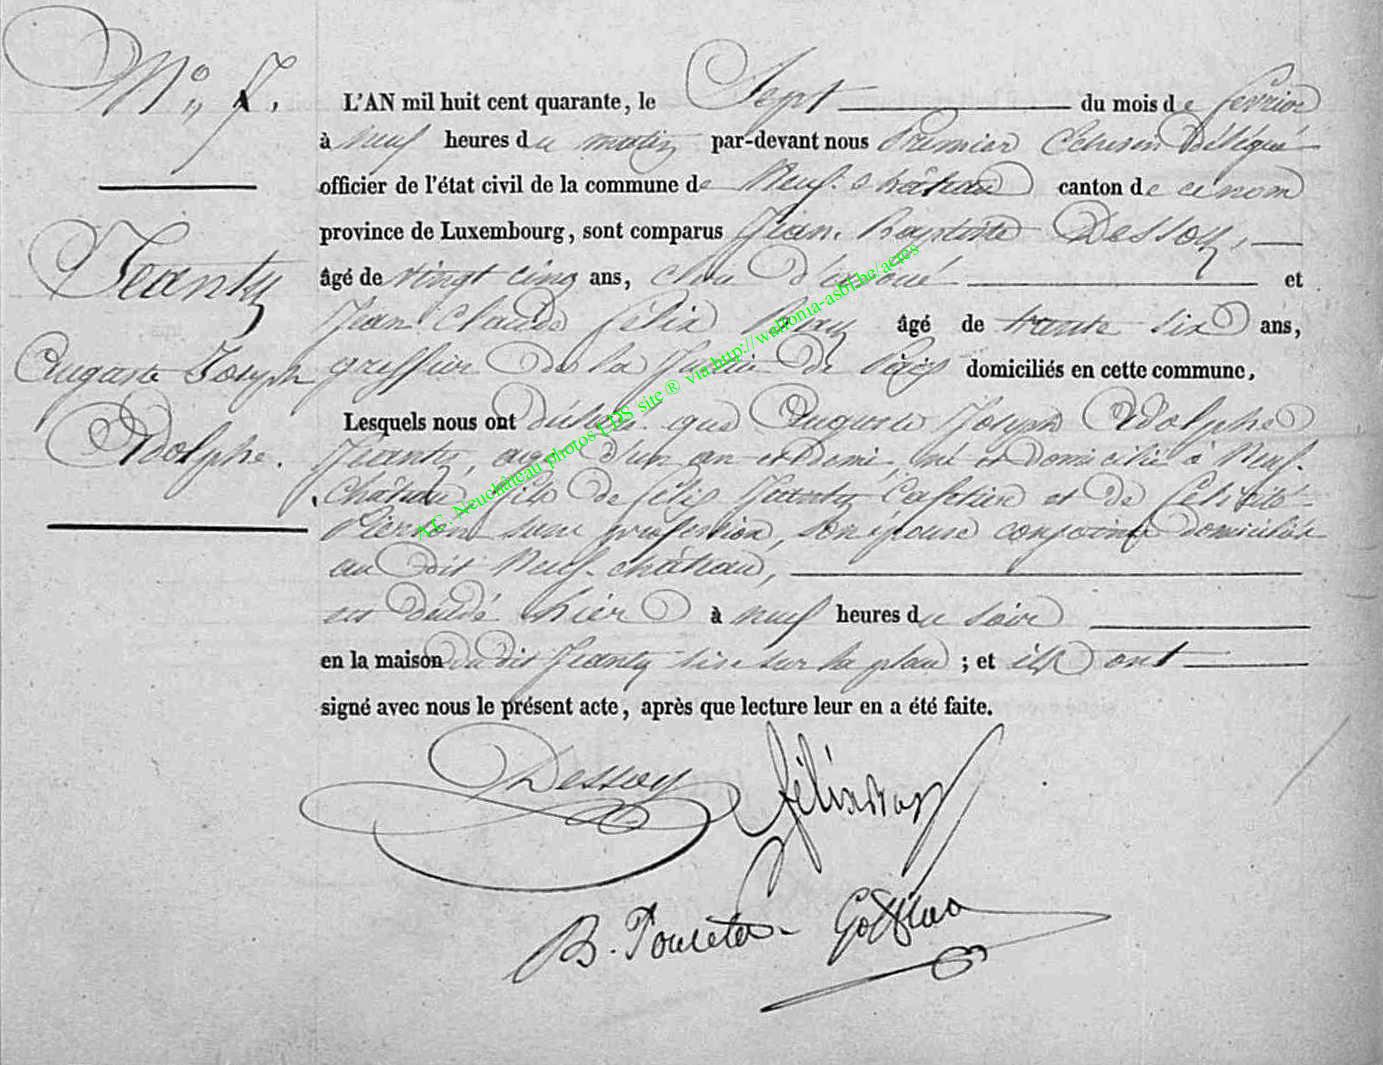 N° 7.
Jeanty
Auguste Joseph
Adolphe.
L'AN mil huit cent quarante, le Sept du mois de fevrier
à neuf heures du matin par-devant nous Premier Echevin Délégué
officier de l'état civil de la commune de Neuf-château canton de ce nom
province de Luxembourg, sont comparus Jean Baptiste Dessoy,
âgé de vingt cinq ans, clerc d'avoué et
Jean Claude félix âgé de trente six ans,
greffier de la Justice de Paix domiciliés en cette commune,
Lesquels nous ont déclaré que Auguste Joseph Adolphe
Jeanty, agé d'un an et demi, né et domicilié à Neuf-
château, fils de félix Jeanty Cafetier et de félicité
Pierson sans profession, son épouse conjoints domiciliés
au dit Neuf-château,
est décédé hier à neuf heures du soir
en la maison du dit Jeanty sise sur la place ; et ils ont
signé avec nous le présent acte, après que lecture leur en a été faite.
Dessoy félix
B.
A.C. Neuchâteau photos LDS site ® via http://wallonia-asbl.be/actes